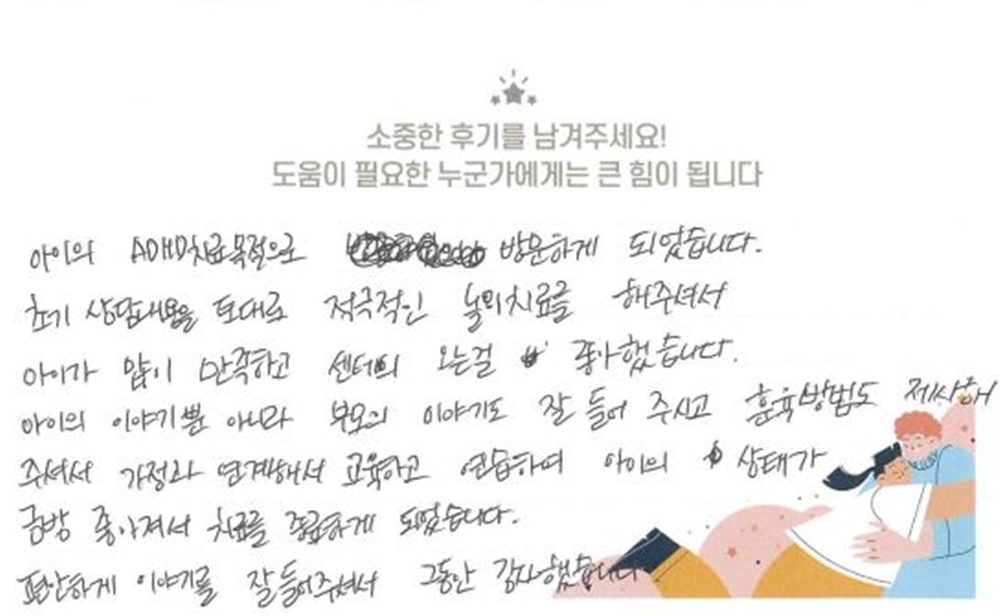 소중한 후기를 남겨주세요!
도움이 필요한 누군가에게는 큰 힘이 됩니다
아이의 ADHD치료목적으로 방문하게 되었습니다.
초기 상담내용을 토대로 적극적인 놀이치료를 해주셔서
아이가 많이 만족하고 센터의 오는걸 좋아했습니다.
아이의 이야기뿐 아니라 부모의 이야기도 잘 들어 주시고 훈육방법도 제시해
주셔서 가정과 연계해서 교육하고 연습하며 아이의 상태가
금방 좋아져서 치료를 종료하게 되었습니다.
편안하게 이야기를 잘 들어주셔서 그동안 감사했습니다